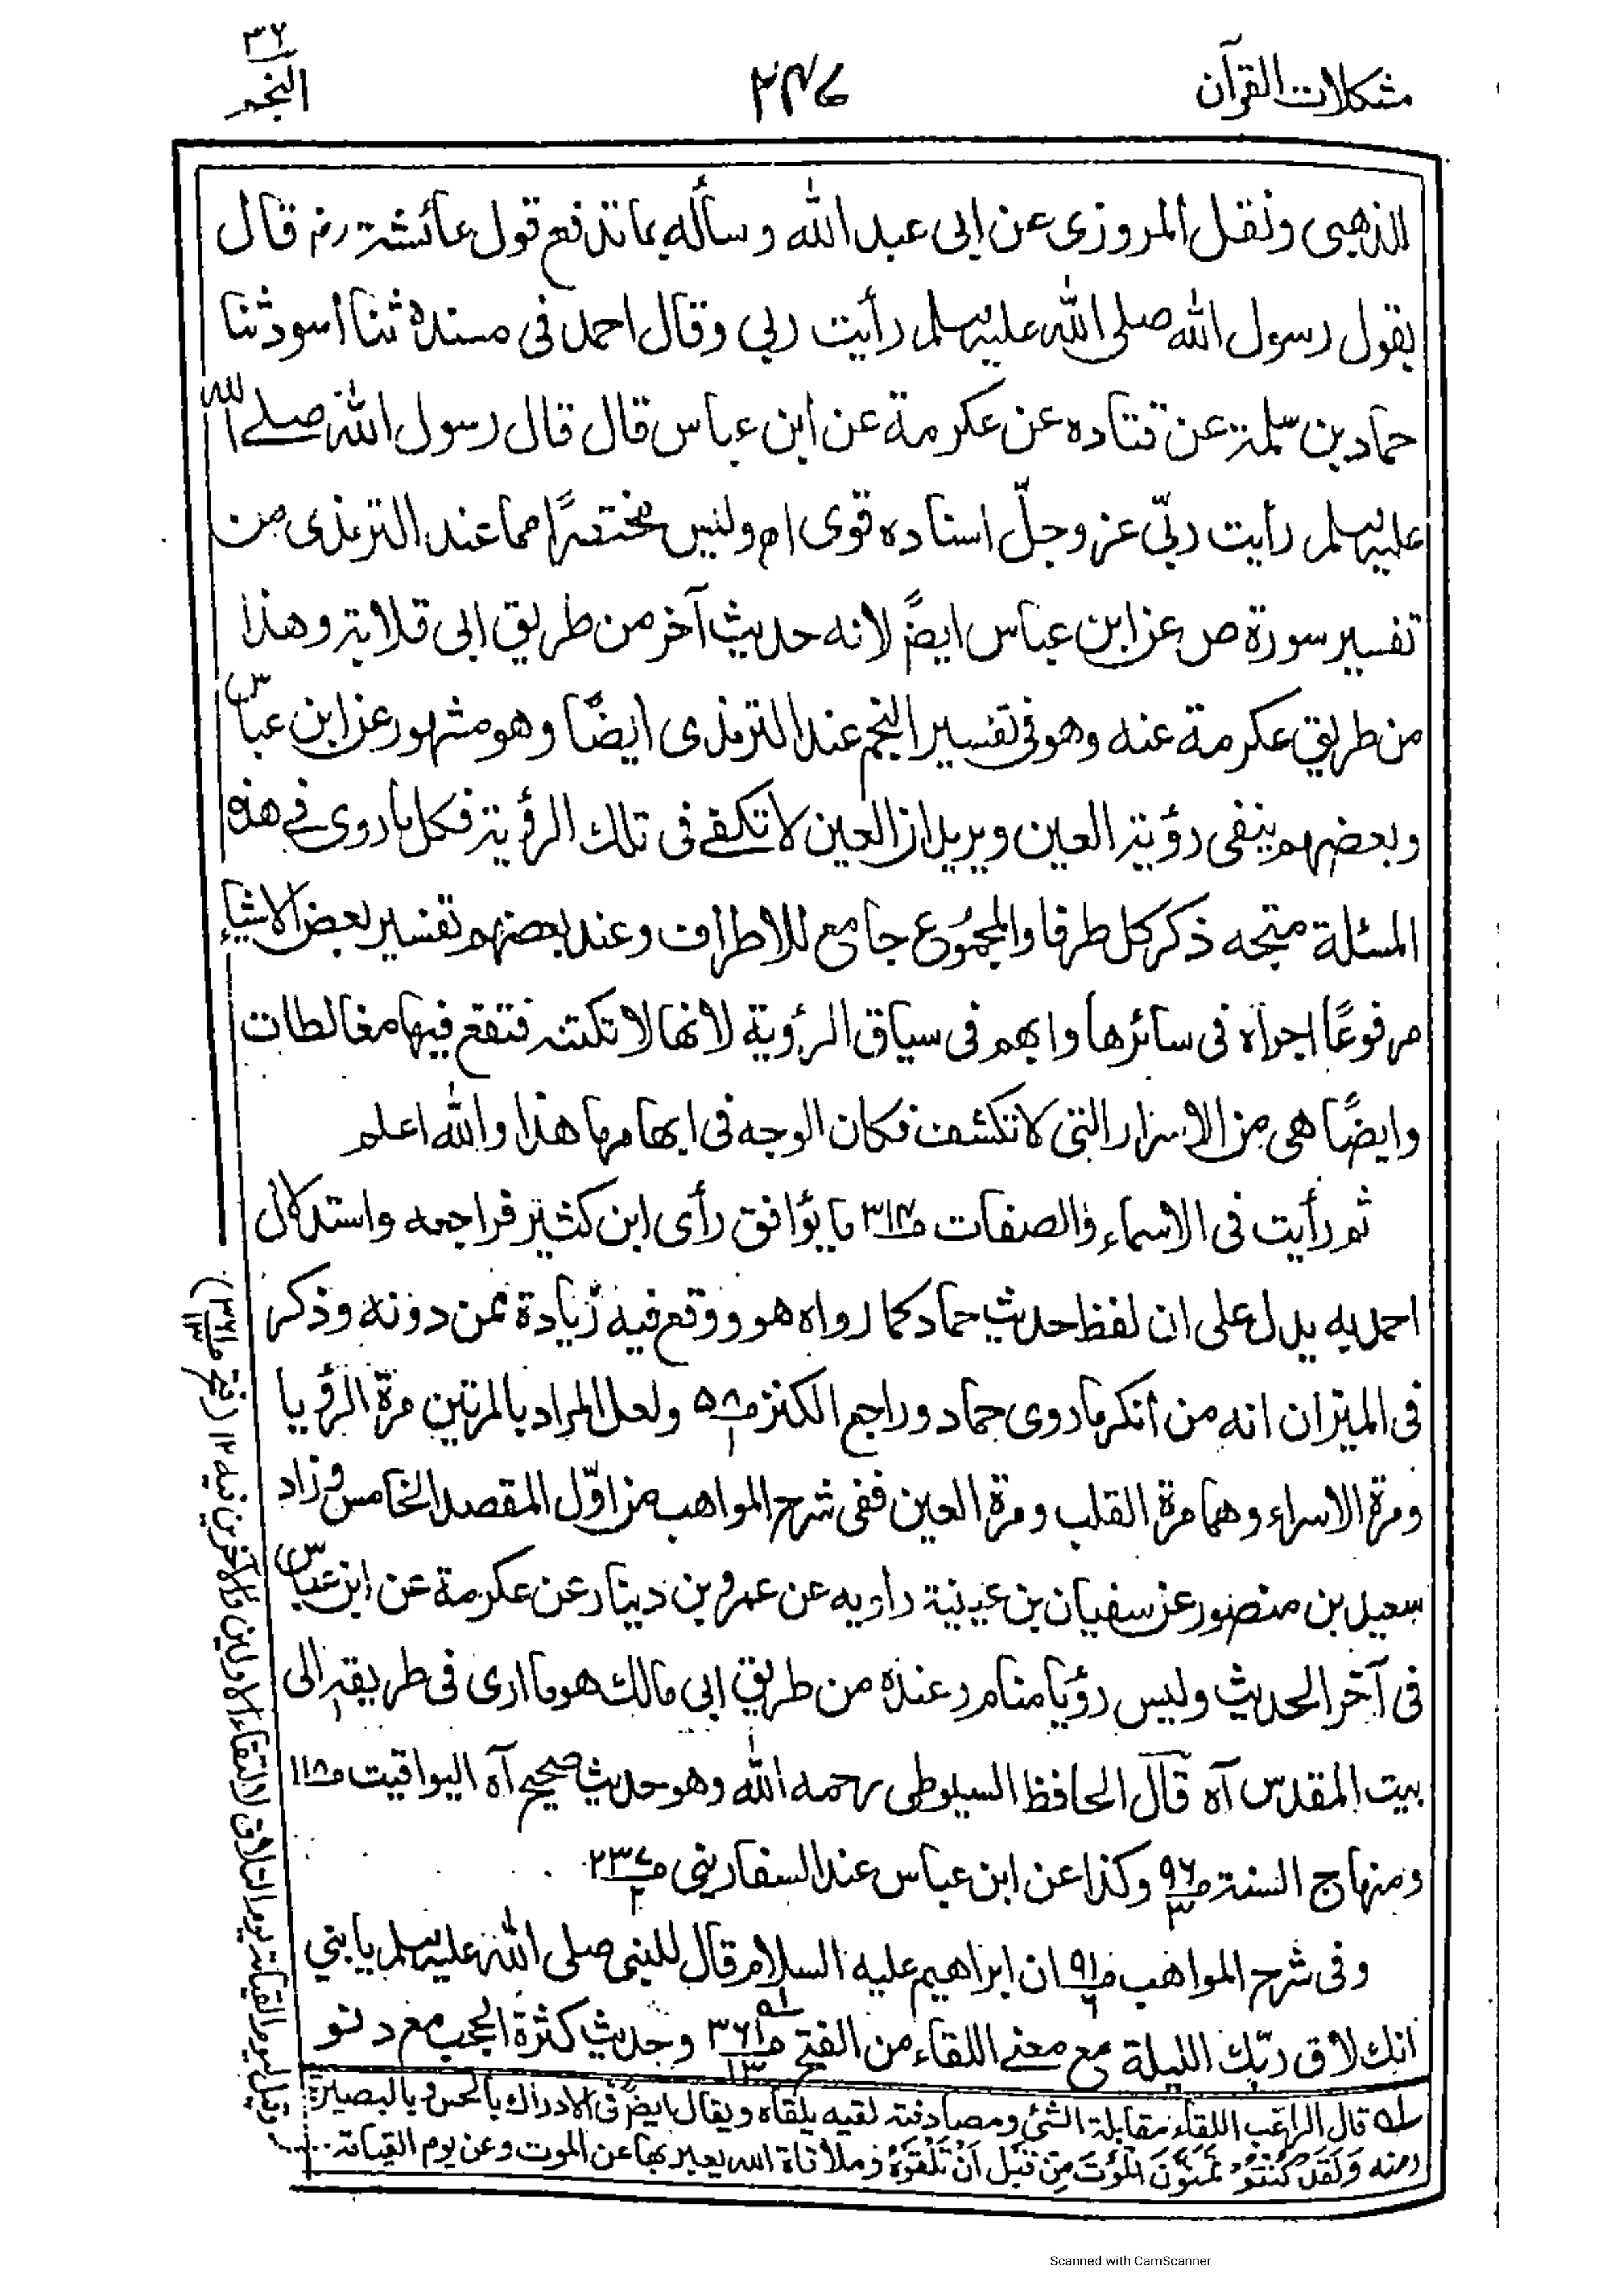 مشكلات القرآن
٢٤٧
٢٧
النجم
للذهبى ونقل المروزى عن ابى عبد الله وسأله بما تدفع قول عائشة رض قال
بقول رسول الله صلى الله عليه وسلم رأيت ربى وقال احمد فى مسنده ثنا اسود ثنا
حماد بن سلمة عن قتاده عن عكرمة عن ابن عباس قال قال رسول الله صلے الله
عليه وسلم رأيت ربّى عز وجلّ اسناده قوى اه وليس مختصرًا مما عند الترمذى من
تفسير سورة ص عن ابن عباس ايضً لانه حديث آخر من طريق ابى قلابة وهذا
من طريق عكرمة عنه وهو فى تفسير النجم عند الترمذى ايضًا وهو مشهور عن ابن عباس
وبعضهم ينفى رؤية العين ويريد ان العين لا تكفے فى تلك الرؤية فكل ما روى فے هذه
المسئلة متجه ذكر كل طرفا والمجموع جامع للاطراف وعند بعضهم تفسير بعض الاشياء
مرفوعًا اجراه فى سائرها وابهم فى سياق الرؤية لانها لا تكتنه فتقع فيها مغالطات
وايضًا هى من الاسرار التى لا تكشف فكان الوجه فى ابهامها هذا والله اعلم
ثم رأيت فى الاسماء والصفات ص٣١٤ ما يوافق رأى ابن كثير فراجعه واستدلال
احمد به يدل على ان لفظ حديث حماد كما رواه هو ووقع فيه زيادة ممن دونه وذكر
فى الميزان انه من أنكر ما روى حماد وراجع الكنز ص٥٨/١ ولعل المراد بالمرتين مرة الرؤيا
ومرة الاسراء وهما مرة القلب ومرة العين ففى شرح المواهب من اوّل المقصد الخامس وزاد
سعيد بن منصور عن سفيان بن عيينة راويه عن عمرو بن دينار عن عكرمة عن ابن عباس
فى آخر الحديث وليس رؤيا منام وعنده من طريق ابى مالك هو ما ارى فى طريقه الى
بيت المقدس آه قال الحافظ السيوطى رحمه الله وهو حديث صحيح آه اليواقيت ص١١٨
ومنهاج السنة ص٩٦/٣ وكذا عن ابن عباس عند السفارينى ص٢٣٧/٢
وفى شرح المواهب ص٩١/٦ ان ابراهيم عليه السلام قال للنبى صلى الله عليه وسلم يا بنى
انك لاق ربّك الليلة مع معنے اللقاء من الفتح ص٣٦١/١٣ وحديث كثرة الحجب مع دنو
له قال الراغب اللقاء مقابلة الشئ ومصادفته لقيه يلقاه ويقال ايضً فى الادراك بالحس وبالبصيرة
ومنه وَلَقَدْ كُنْتُمْ تَمَنَّوْنَ الْمَوْتَ مِنْ قَبْلِ اَنْ تَلْقَوْهُ وملاقاة الله يعبر بها عن الموت وعن يوم القيامة
وقيل ليوم القيامة يوم التلاق لالتقاء الاولين والآخرين فيه ١٢ (فتح ص٣٦١/١٣)
Scanned with CamScanner